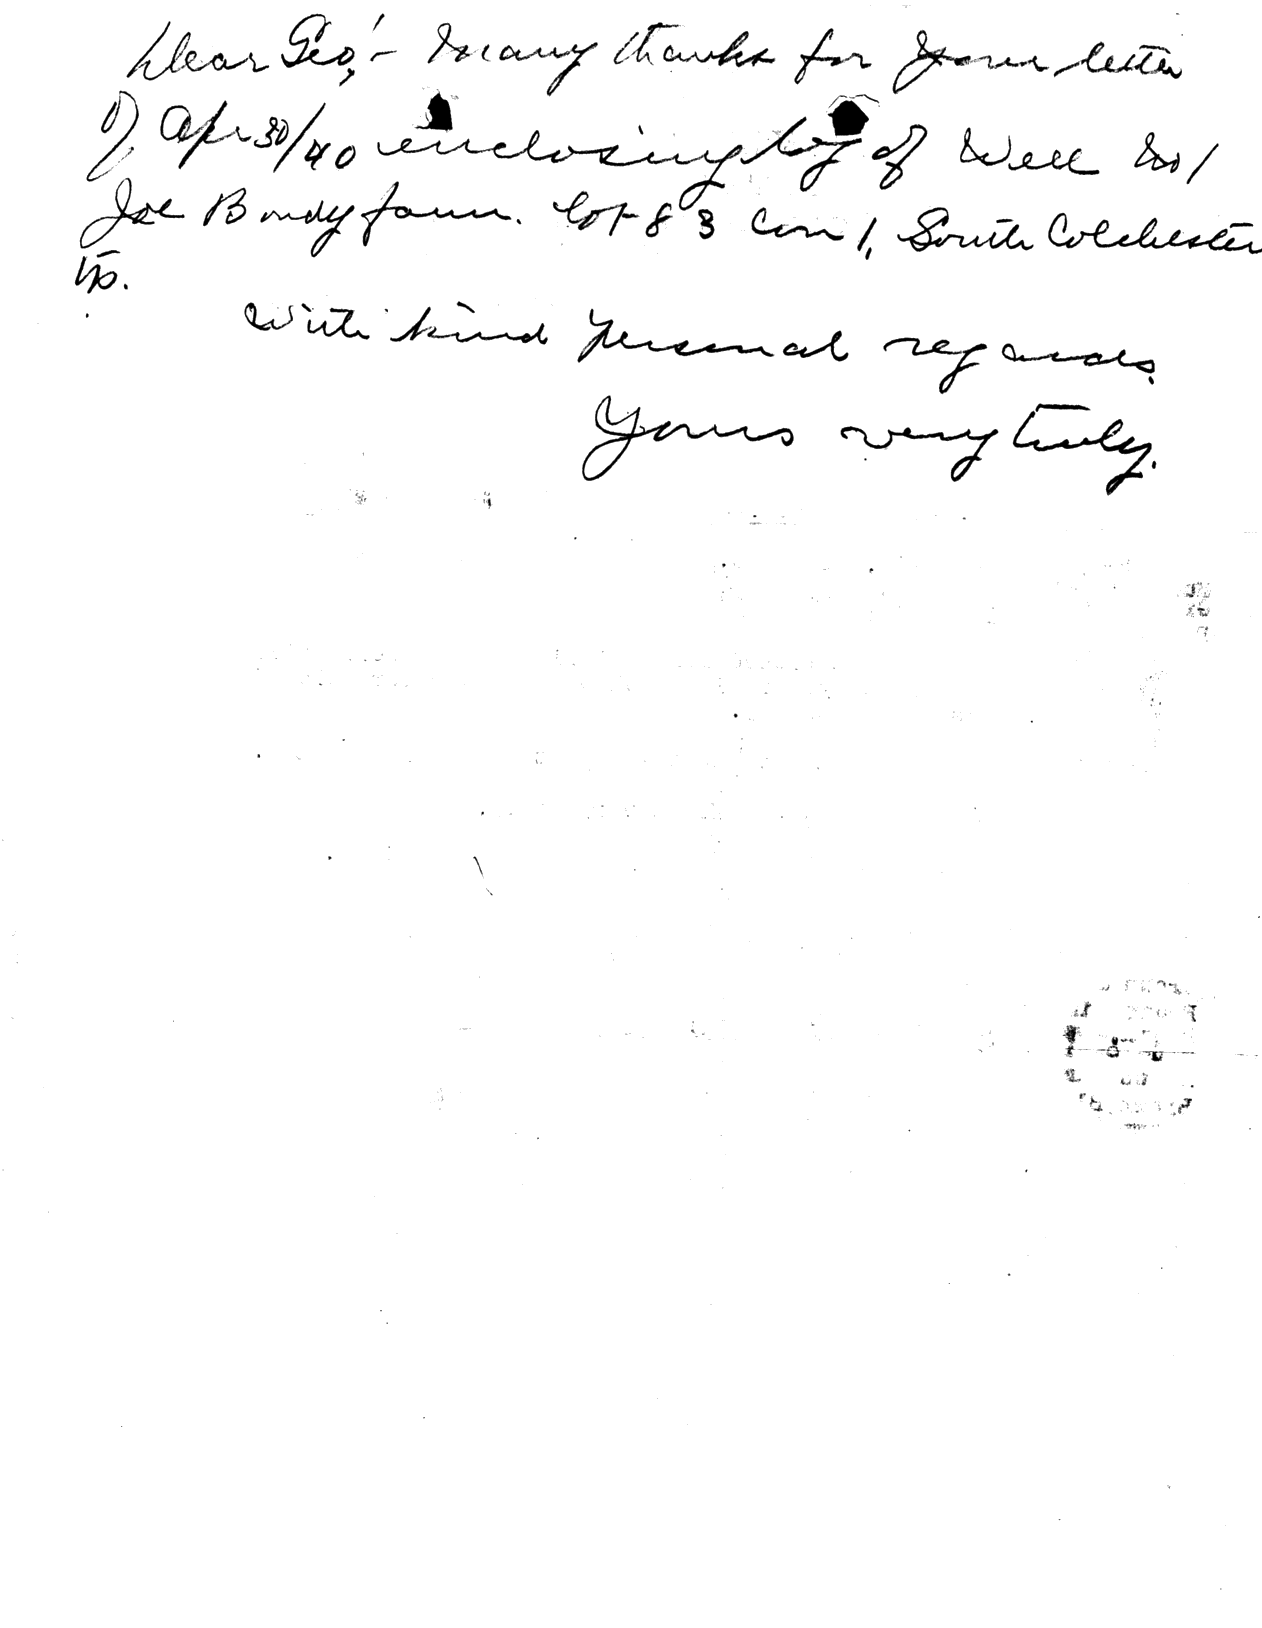 Dear Geo,:- Many thanks for your letter
of Apr 30/40 enclosing log of Well No 1
Joe Bondy farm. Lot 83 Con 1, South Colchester
Tp.
With kind personal regards.
Yours very truly.